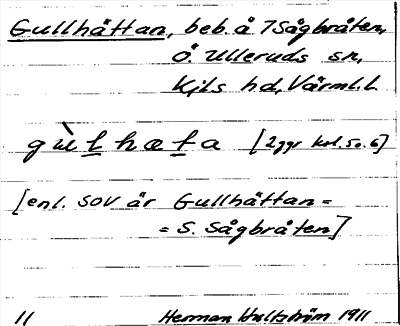 Gullhättan, beb. å 7 Sågbråten,
Ö. Ulleruds sn,
Kils hd, Värml. l.
gùlhæta [2 ggr kol. so. 6]
[enl. SOV är Gullhättan =
= S. Sågbråten]
11 Herman Hultström 1911